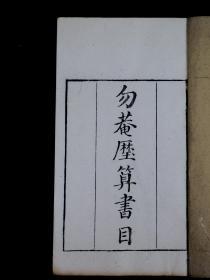 勿菴歷算書目